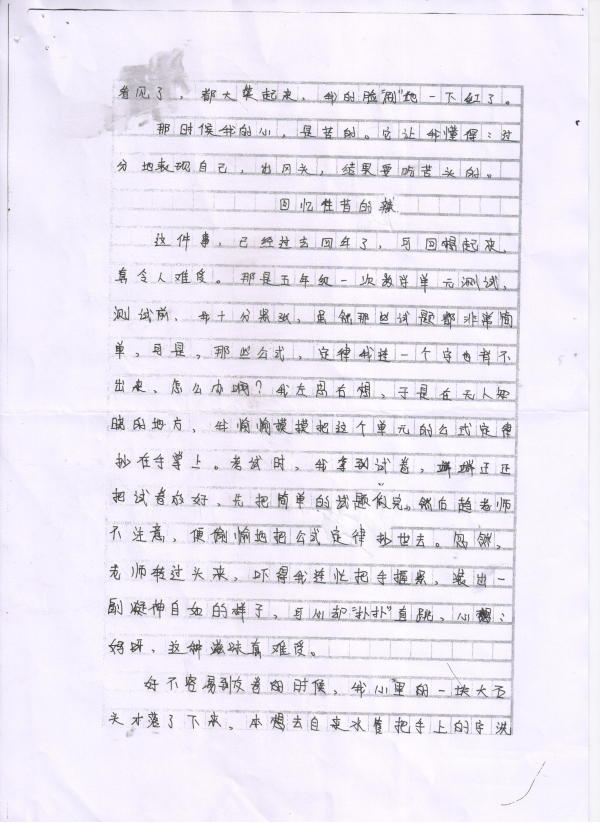 看见了，都大笑起来，我的脸"刷"地一下红了。
那时候我的心，是苦的。它让我懂得：过
分地表现自己，出风头，结果要吃苦头的。
回忆往昔的辣
这件事，已经过去四年了，可回想起来，
真令人难受。那是五年级一次数学单元测试，
测试前，我十分紧张，虽然那些试题都非常简
单，可是，那些公式，定律我连一个字也背不
出来，怎么办啊？我左思右想，于是在无人知
晓的地方，我偷偷摸摸把这个单元的公式定律
抄在手掌上。考试时，我拿到试卷，端端正正
把试卷放好，先把简单的试题做完。然后趁老师
不注意，便偷偷地把公式定律抄进去。忽然，
老师转过头来，吓得我连忙把手握紧，装出一
副凝神自如的样子，可心却"扑扑"直跳，心想：
妈呀，这种滋味真难受。
好不容易到交卷的时候，我心里的一块大石
头才落了下来，本想去自来水管把手上的字洗